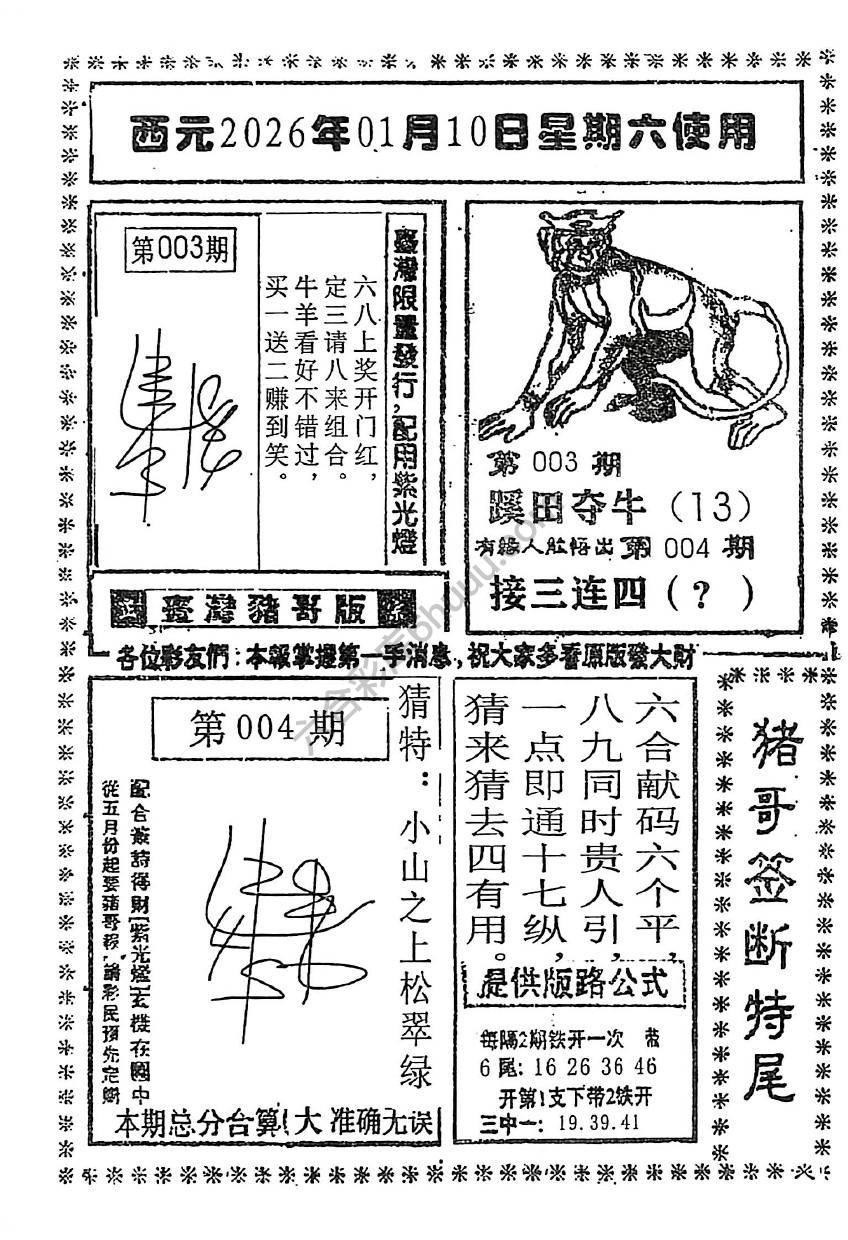 西元2026年01月10日星期六使用
第003期
六八上奖开门红，
定三请八来组合。
牛羊看好不错过，
买一送二赚到笑。
臺灣限量發行，配用紫光燈
臺灣豬哥版
第 003 期
蹊田夺牛（13）
有緣人能悟出 第 004 期
接三连四（？）
各位彩友們：本報掌握第一手消息，祝大家多看原版發大財
第004期
猜特：小山之上松翠绿
配合簽詩得財[紫光燈]玄機在圖中
從五月份起要豬哥報，請彩民預先定購
本期总分合算（大 准确无误
六合献码六个平，
八九同时贵人引，
一点即通十七纵，
猜来猜去四有用。
提供版路公式
每隔2期铁开一次 带
6尾：16 26 36 46
开第1支下带2铁开
三中一：19.39.41
猪哥签断特尾